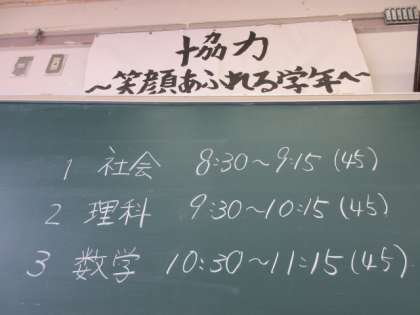 協力
～笑顔あふれる学年へ～
1 社会 8:30～9:15 (45)
2 理科 9:30～10:15 (45)
3 数学 10:30～11:15 (45)